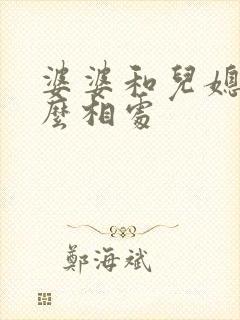 婆婆和兒媳
麼相處
鄭海斌